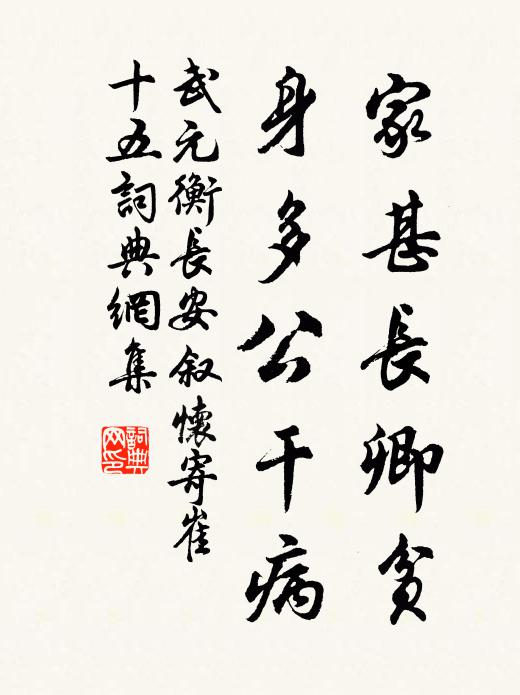 家甚長卿貧
身多公干病
武元衡長安叙懷寄崔
十五詞典網集
詞典
网印